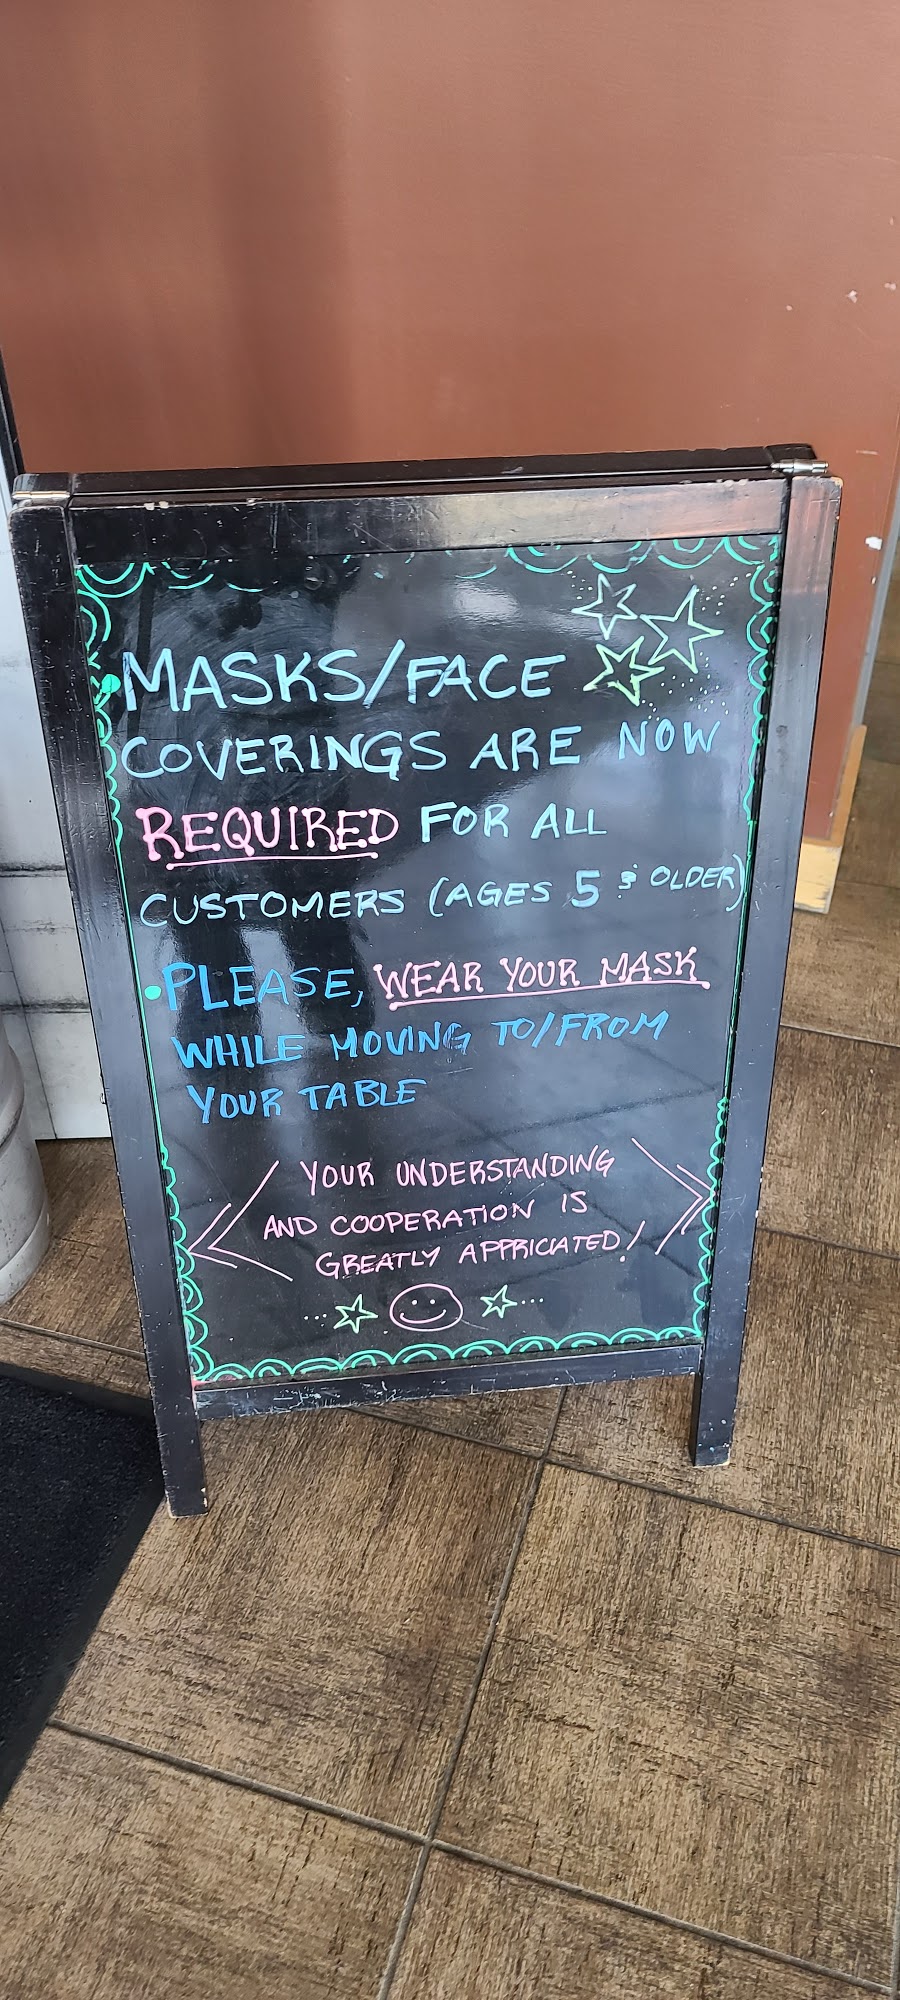 •MASKS/FACE
COVERINGS ARE NOW
REQUIRED FOR ALL
CUSTOMERS (AGES 5 & OLDER)
•PLEASE, WEAR YOUR MASK
WHILE MOVING TO/FROM
YOUR TABLE
YOUR UNDERSTANDING
AND COOPERATION IS
GREATLY APPRICIATED!